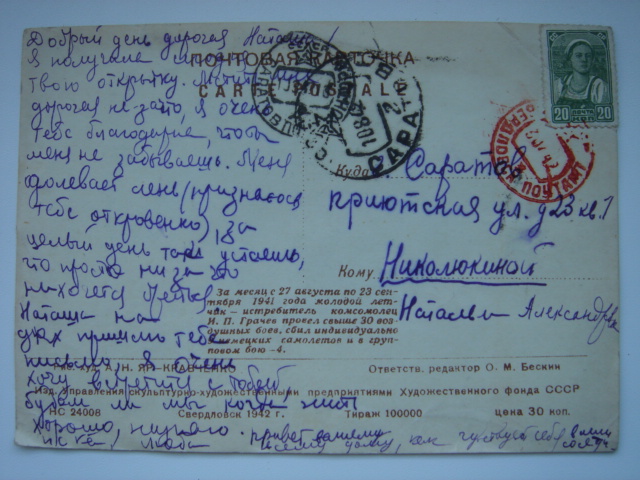 Добрый день дорогая Наташа!
Я получила
ПОЧТОВАЯ КАРТОЧКА
твою открытку.
CARTE POSTALE
дорогая не зато, я очень
тебе благодарна, что ты
меня не забываешь. Меня
одолевает лень (признаюся
тебе откровенно), за
целый день так устаешь,
что просто ни за что
не хочется
Наташа на
днях пришлю тебе
письмо, я очень
хочу встретиться с тобой
будем ли мы когда
хорошо,
привет вашему
всему дому, как чувствует себя
20 ПОЧТА 20
КОП
САРАТОВ
10 8 42
СВЕРДЛОВСК ПОЧТАМТ
Куда г. Саратов
приютская ул. д 23 кв. 7
Кому Николюкиной
Наталье Александровне
За месяц с 27 августа по 23 сен-
тября 1941 года молодой лет-
чик — истребитель комсомолец
И. П. Грачев провел свыше 30 воз-
душных боев, сбил индивидуально
немецких самолетов и в груп-
повом бою -4.
худ. А. Н. ЯР-КРАВЧЕНКО
Ответств. редактор О. М. Бескин
Изд. Управления скульптурно-художественными предприятиями Художественного фонда СССР
НС 24008 Свердловск 1942 г. Тираж 100000 цена 30 коп.